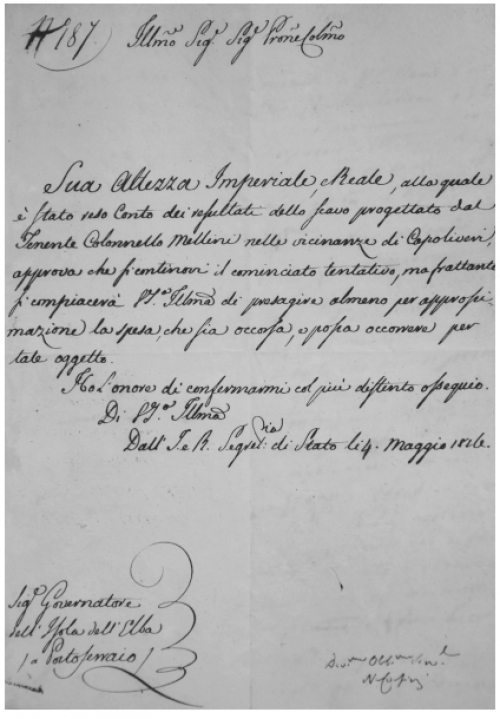 187.
Illmo Sigr. Sigr. Prone Colmo
Sua Altezza Imperiale, e Reale, alla quale
è stato reso Conto dei resultati dello scavo progettato dal
Tenente Colonnello Mellini nelle vicinanze di Capoliveri,
approva che si continovi il cominciato tentativo, ma frattanto
si compiacerà VS. Illma di presagire almeno per approssi-
mazione la spesa, che sia occorsa, o possa occorrere per
tale oggetto.
Ho l'onore di confermarmi col più distinto ossequio.
Di VS. Illma
Dall' I. e R. Segretia: di Stato li 4. Maggio 1816.
Sigr. Governatore
dell' Isola dell' Elba
a Portoferraio